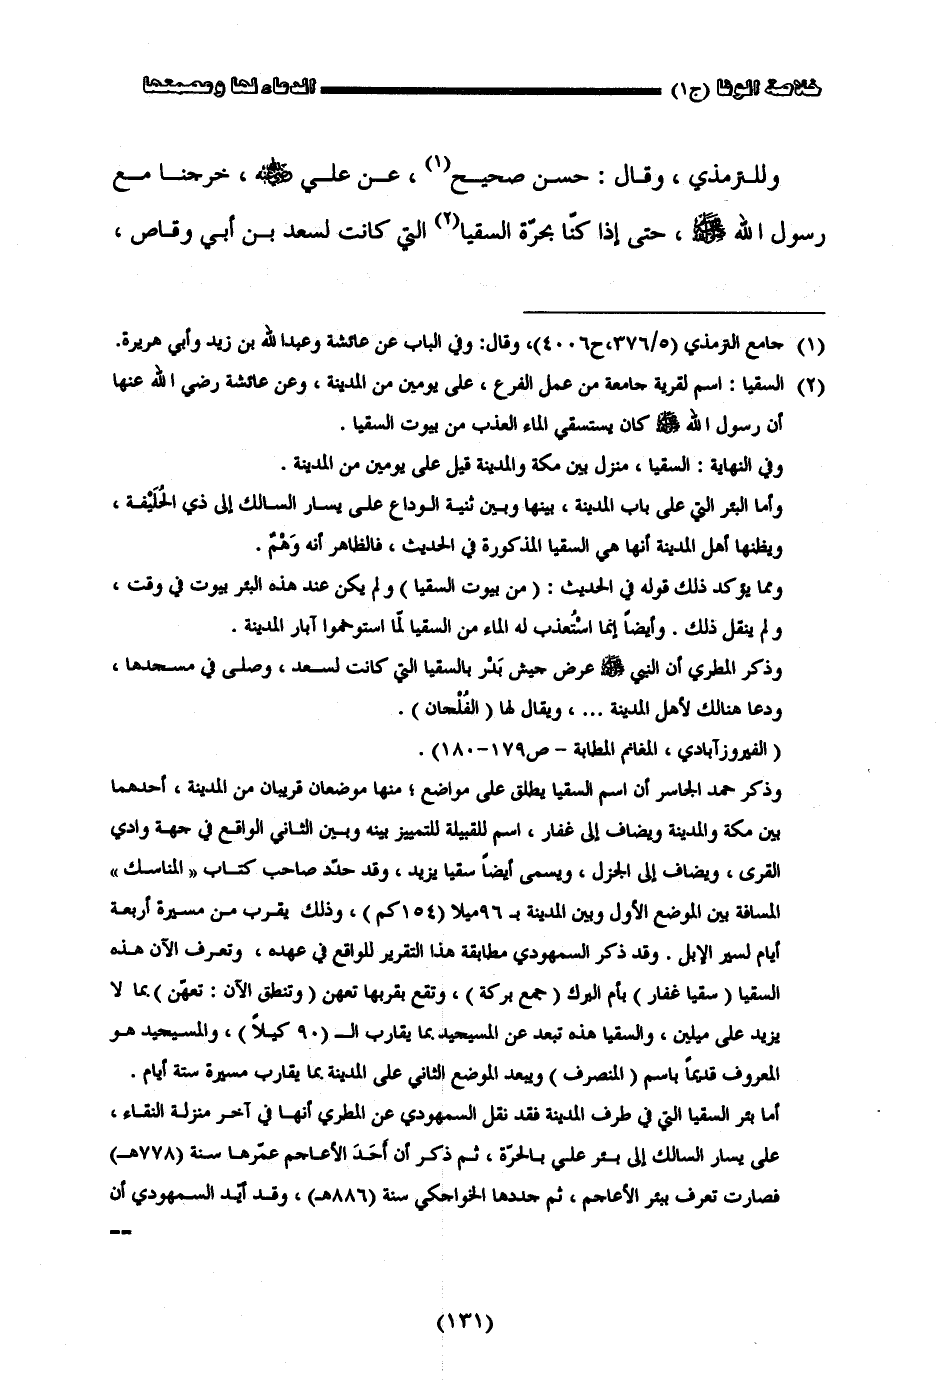 خلاصة الوفا (ج١) الدعاء لها ومصعها
وللترمذي ، وقال : حسن صحيح(١) ، عن علي ﷺ ، خرجنا مع
رسول الله ﷺ ، حتى إذا كنّا بحرّة السقيا(٢) التي كانت لسعد بن أبي وقاص ،
(١) جامع الترمذي (٣٧٦/٥،ح٤٠٠٦)، وقال: وفي الباب عن عائشة وعبدالله بن زيد وأبي هريرة.
(٢) السقيا : اسم لقرية جامعة من عمل الفرع ، على يومين من المدينة ، وعن عائشة رضي الله عنها
أن رسول الله ﷺ كان يستسقي الماء العذب من بيوت السقيا .
وفي النهاية : السقيا ، منزل بين مكة والمدينة قيل على يومين من المدينة .
وأما البئر التي على باب المدينة ، بينها وبين ثنية الوداع على يسار السالك إلى ذي الحُلَيْفة ،
ويظنها أهل المدينة أنها هي السقيا المذكورة في الحديث ، فالظاهر أنه وَهْمٌ .
ومما يؤكد ذلك قوله في الحديث : ( من بيوت السقيا ) ولم يكن عند هذه البئر بيوت في وقت ،
ولم ينقل ذلك . وأيضاً إنما استُعذب له الماء من السقيا لمّا استوخموا آبار المدينة .
وذكر المطري أن النبي ﷺ عرض جيش بَدْر بالسقيا التي كانت لسعد ، وصلى في مسجدها ،
ودعا هنالك لأهل المدينة ... ، ويقال لها ( الفُلْجان ) .
( الفيروزآبادي ، المغانم المطابة – ص١٧٩-١٨٠) .
وذكر حمد الجاسر أن اسم السقيا يطلق على مواضع ؛ منها موضعان قريبان من المدينة ، أحدهما
بين مكة والمدينة ويضاف إلى غفار ، اسم للقبيلة للتمييز بينه وبين الثاني الواقع في جهة وادي
القرى ، ويضاف إلى الجزل ، ويسمى أيضاً سقيا يزيد ، وقد حدّد صاحب كتاب « المناسك »
المسافة بين الموضع الأول وبين المدينة بـ ٩٦ميلا (١٥٤كم ) ، وذلك يقرب من مسيرة أربعة
أيام لسير الإبل . وقد ذكر السمهودي مطابقة هذا التقرير للواقع في عهده ، وتعرف الآن هذه
السقيا ( سقيا غفار ) بأم البرك ( جمع بركة ) ، وتقع بقربها تعهن ( وتنطق الآن : تعهّن ) بما لا
يزيد على ميلين ، والسقيا هذه تبعد عن المسيحيد بما يقارب الـ ( ٩٠ كيلاً ) ، والمسيحيد هو
المعروف قديماً باسم ( المنصرف ) ويبعد الموضع الثاني على المدينة بما يقارب مسيرة ستة أيام .
أما بئر السقيا التي في طرف المدينة فقد نقل السمهودي عن المطري أنها في آخر منزلة النقاء ،
على يسار السالك إلى بئر علي بالحرّة ، ثم ذكر أن أَحَدَ الأعاجم عمّرها سنة (٧٧٨هـ)
فصارت تعرف ببئر الأعاجم ، ثم جددها الخواجكي سنة (٨٨٦هـ) ، وقد أيّد السمهودي أن
--
(١٣١)